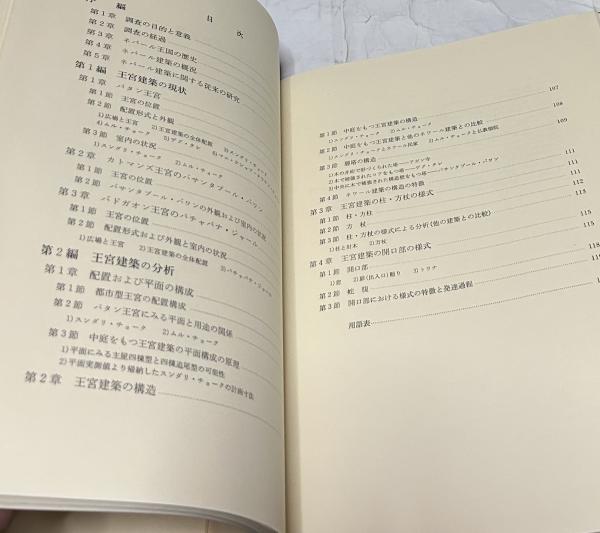 序編
目次
第1章 調査の目的と意義
第2章 調査の経過
第3章 ネパール王国の歴史
第4章 ネパール建築の概況
第5章 ネパール建築に関する従来の研究
第1編 王宮建築の現状
第1章 パタン王宮
第1節 王宮の位置
第2節 配置形式と外観
1)広場と王宮 2)王宮建築の全体配置 3)スンダリ・チョーク
4)ムル・チョーク 5)デグ・タレ
第3節 室内の状況
1)スンダリ・チョーク 2)ムル・チョーク
第2章 カトマンズ王宮のバサンタプール・バワン
第1節 王宮の位置
第2節 バサンタプール・バワンの外観および室内の状況
第3章 バドガオン王宮のパチャパナ・ジャール
第1節 王宮の位置
第2節 配置形式および外観と室内の状況
1)広場と王宮 2)王宮建築の全体配置 3)パチャパナ・ジャール
第2編 王宮建築の分析
第1章 配置および平面の構成
第1節 都市型王宮の配置構成
第2節 パタン王宮にみる平面と用途の関係
1)スンダリ・チョーク 2)ムル・チョーク
第3節 中庭をもつ王宮建築の平面構成の原理
1)平面にみる主屋四棟型と四棟追尾型の可能性
2)平面実測値より帰納したスンダリ・チョークの計画寸法
第2章 王宮建築の構造
107
第1節 中庭をもつ王宮建築の構造
1)スンダリ・チョーク 2)ムル・チョーク
108
第2節 中庭をもつ王宮建築と他のネワール建築との比較
1)スンダリ・チョークとネワール民家 2)ムル・チョークと仏教僧院
109
第3節 層塔の構造
1)木の井桁で形づくられた塔 111
2)木で補強されたコアをもつ塔――デグ・タレ 111
3)中央に木で補強された構造壁をもつ塔――バサンタプール・バワン 111
第4節 ネワール建築の構造の特徴 112
第3章 王宮建築の柱・方杖の様式 113
第1節 柱・方柱
第2節 方杖
第3節 柱・方杖の様式による分析(他の建築との比較) 115
1)柱と肘木 2)方杖 115
第4章 王宮建築の開口部の様式
第1節 開口部 118
1)窓 2)扉(出入口)飾り 3)トリナ 119
第2節 蛇腹
第3節 開口部における様式の特徴と発達過程
用語表